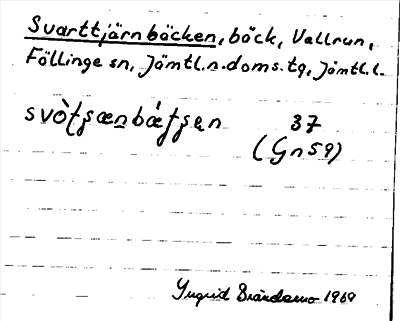 Svarttjärnbäcken, bäck, Vallrun,
Föllinge sn, Jämtl. n. doms. tg, Jämtl. l.
37
(Gn 59)
Ingrid Brändemo 1969